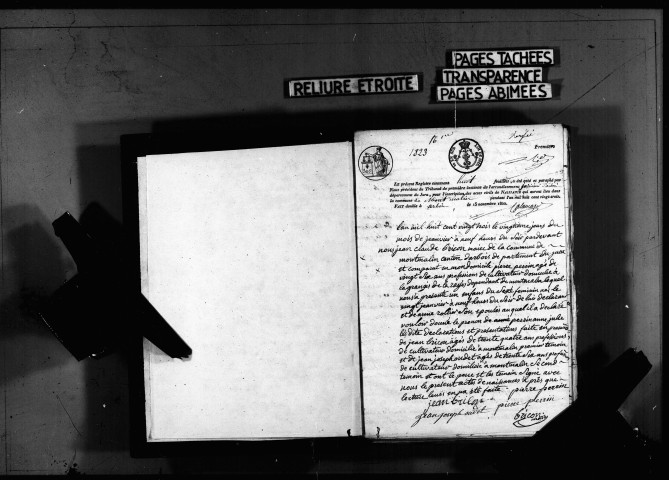 RELIURE ETROITE
PAGES TACHEES
TRANSPARENCE
PAGES ABIMEES
1823
Première
Le présent Registre contenant huit feuillets, a été coté et paraphé par
Nous président du Tribunal de première instance de l'arrondissement
département du Jura, pour l'inscription des actes civils de NAISSANCE qui seront faits dans
la commune de pendant l'an mil huit cent vingt-trois.
FAIT double à le 15 novembre 1822.
L'an mil huit cent vingt trois le vingtième jour du
mois de janvier à neuf heures du soir pardevant
nous jean claude Bricon maire de la commune de
montmalin canton darbois departiment du jura
est comparu en mon domicile pierre perrin agé de
vingt six ans profession de cultivateur domicilié à
la grange de dependant de montmalin lequel
nous a presenté un enfans du sexe feminin né le
vingt janvier à neuf heures du soir de lui declarant
et de son epouse au quel il a declaré
vouloir donné le prenom de perrin anne julie
les dite declarations et presentations faite en presence
de jean bricon agé de trente quatre ans profession
de cultivateur domicilié à montmalin premier temoin
et de jean joseph agés de trente six ans profession
de cultivateur domicilié à montmalin second
temoin et ont le pere et les temoin signé avec
nous le present acte de naissances après que
lecture leurs en na eté faite pierre perrin
jean bricon
jean joseph pierre perrin
Bricon